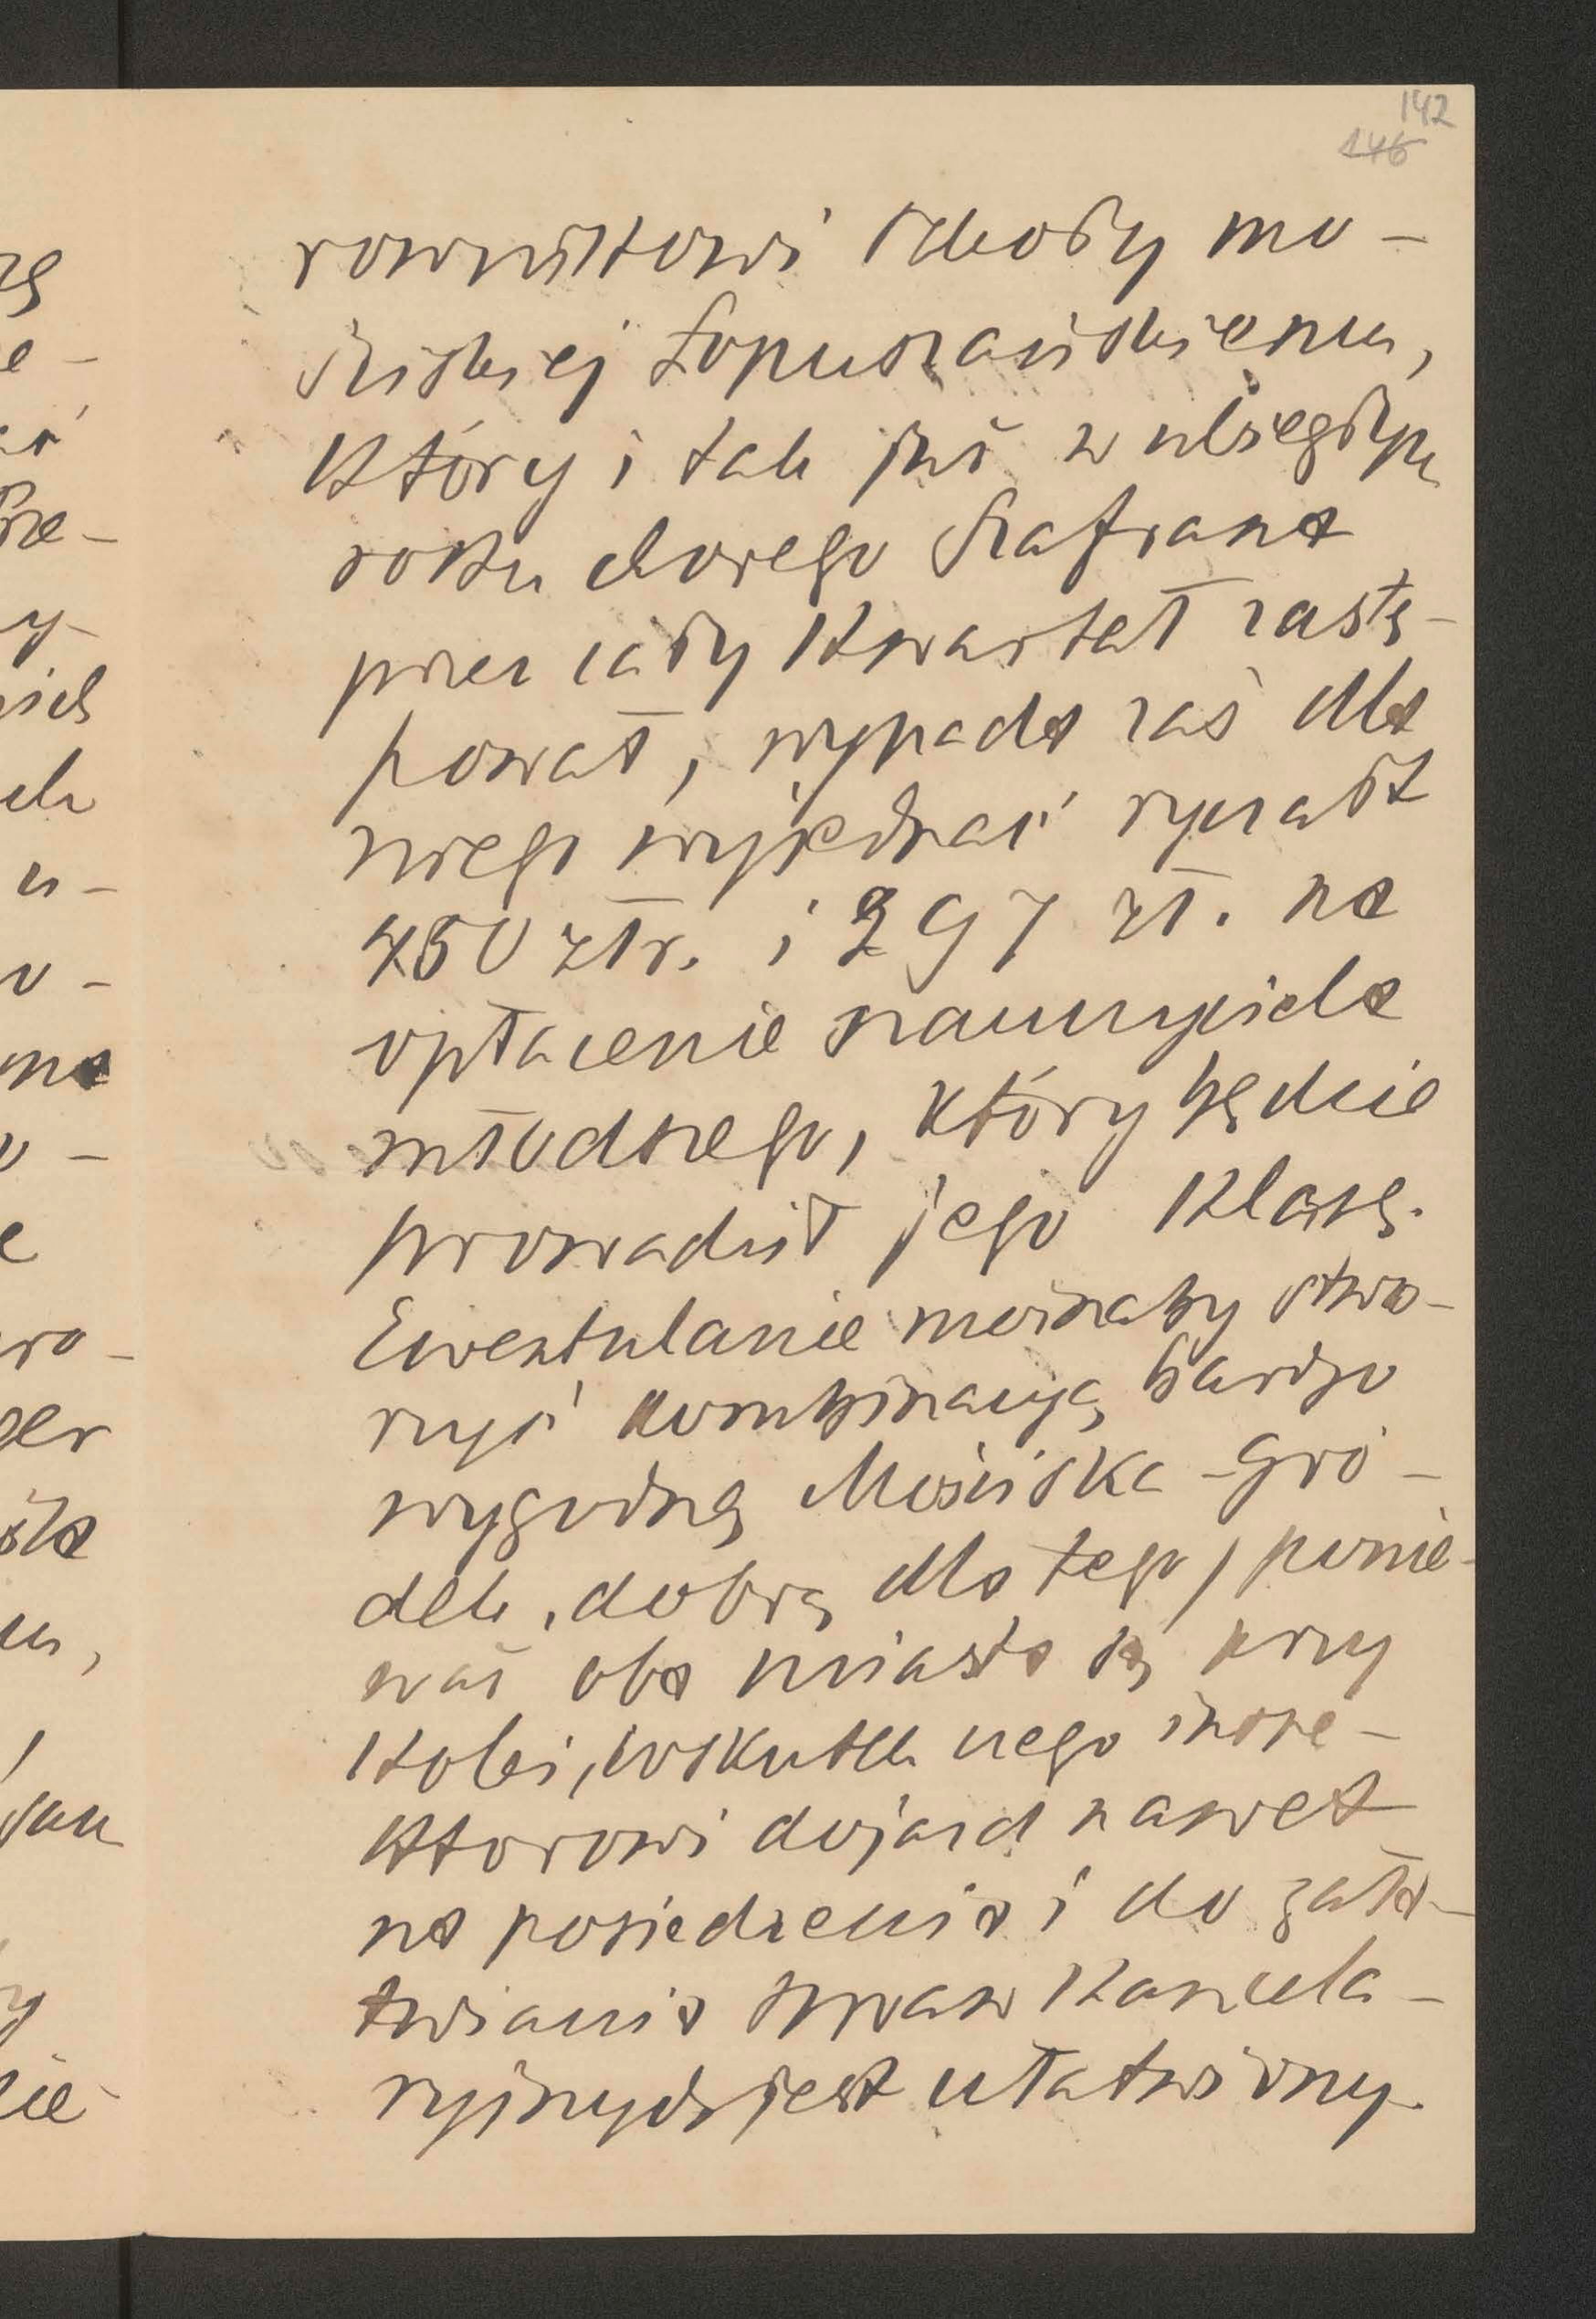 142
146
rownikowi szkoły mo-
ściskiej Łopuszańskiemu,
który i tak już w ubiegłym
roku chorego Szafrana
przez cały kwartał zastę-
pował, wypada zaś dla
niego wyjednać ryczałt
450 złr. i 297 zł. na
opłacenie nauczyciela
młodszego, który będzie
prowadził jego klasę.
Ewentulanie możnaby stwo-
rzyć kombinacyą bardzo
wygodną Mościska-Gró-
dek, dobrą dla tego, ponie-
waż oba miasta są przy
kolei, wskutek czego inspe-
ktorowi dojazd nawet
na posiedzenia i do zała-
twiania spraw kancela-
ryjnych jest ułatwiony.